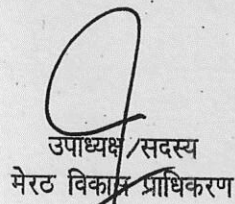 उपाध्यक्ष/सदस्य
मेरठ विकास प्राधिकरण